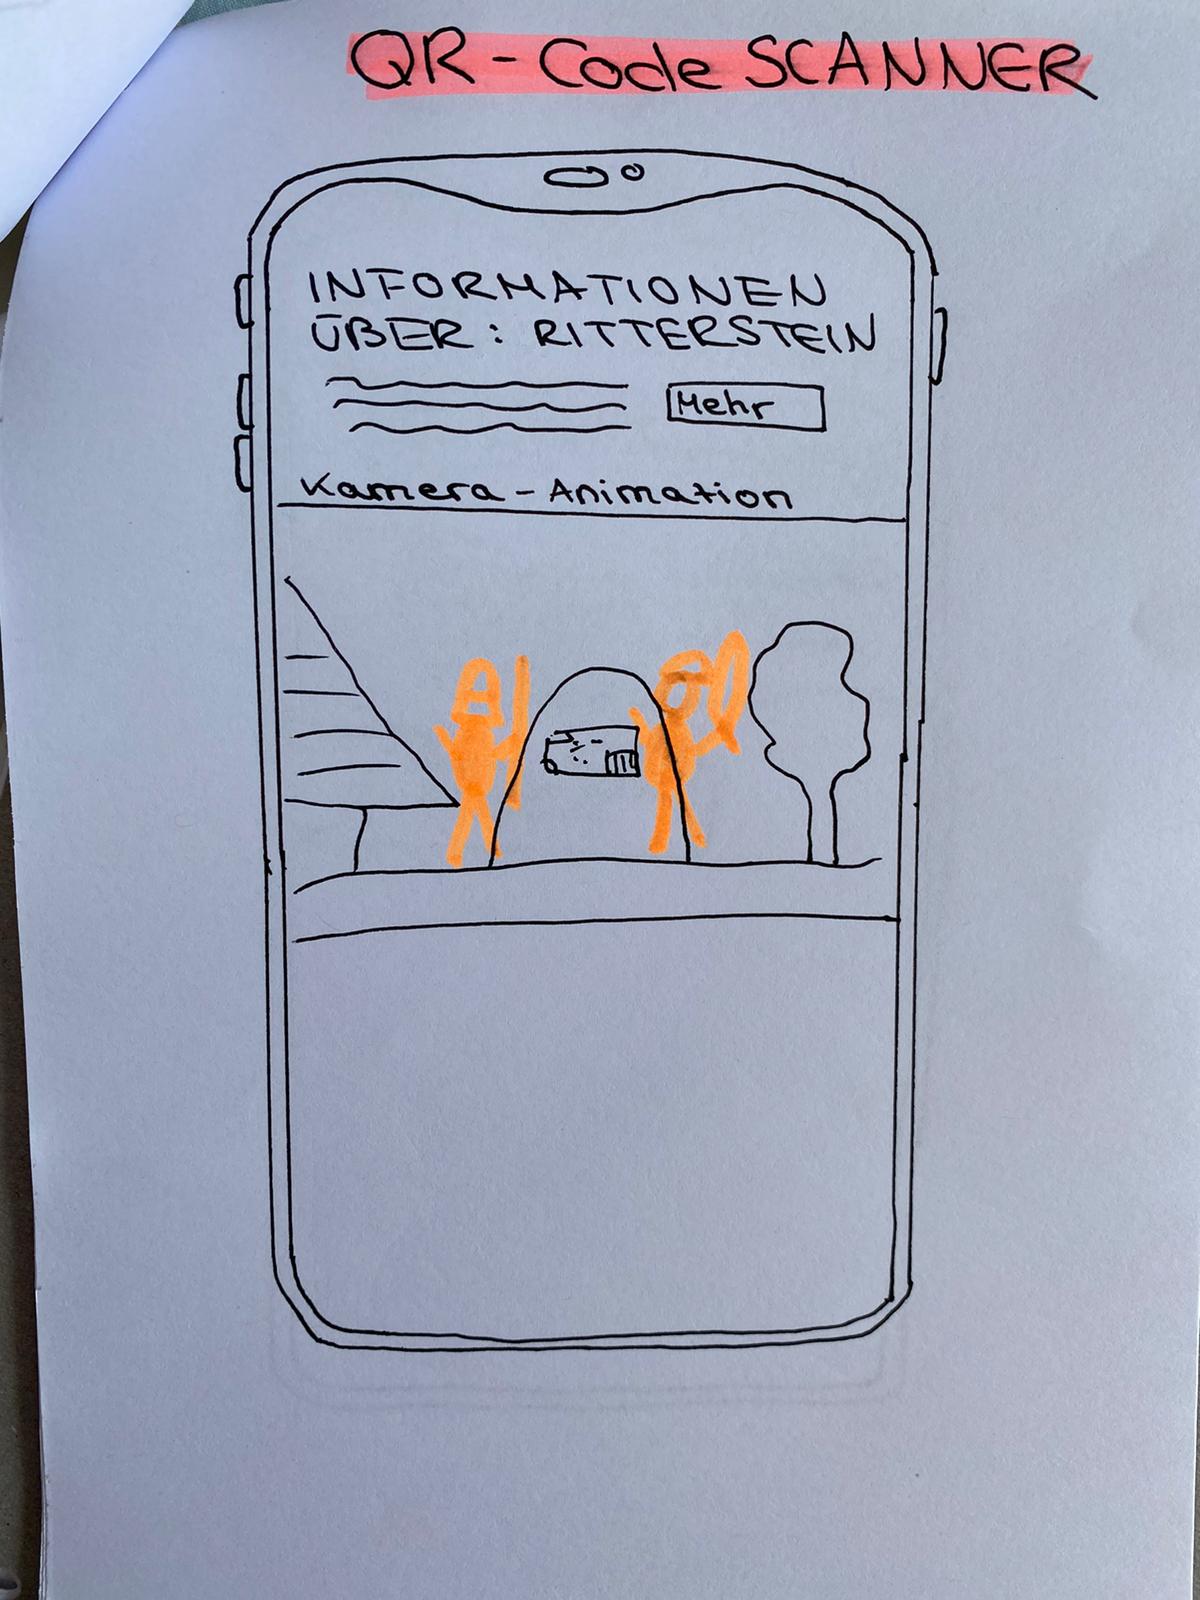 QR-Code SCANNER
INFORMATIONEN
ÜBER: RITTERSTEIN
Mehr
Kamera-Animation